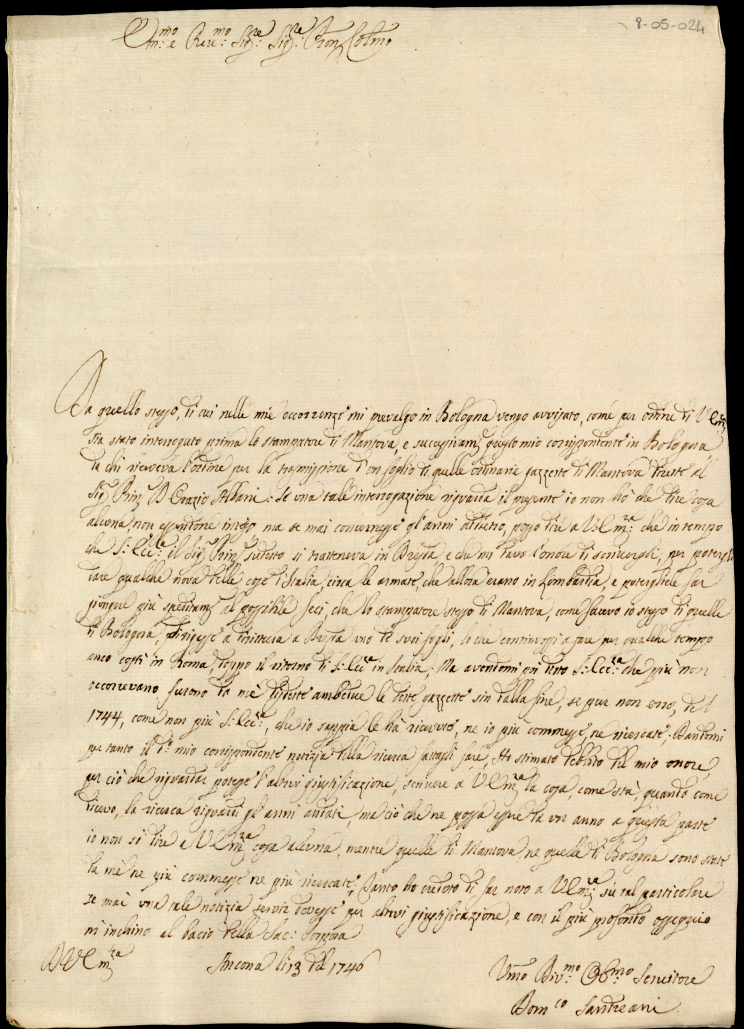 8-05-024
Em:mo e Rev:mo Sig:re Sig:re Pron Colmo
Da quello stesso, di cui nelle mie occorrenze mi prevalgo in Bologna vengo avvisato, come per ordine di V Em:za
sia stato interrogato prima lo stampatore di Mantova, e successivam:te quello mio corrispondente in Bologna,
da chi riceveva l'ordine per la trasmissione d'un foglio di quelle ordinarie gazzette di Mantova dirette al
Sig:r Prin:e D. Orazio Albani: Se una tale interrogazione riguarda il presente io non hò che dire cosa
alcuna, non essendone inteso ma se mai concernesse gl'anni addietro, posso dire a V: Em:za che in tempo
che S: Ecc:za il Sig:r Prin:e sudetto si tratteneva in Dresda e che mi dava l'onore di scrivergli, per potergli
dare qualche nova delle cose d'Italia, circa le armate, che allora erano in Lombardia, e potergliele far
giungere più speditam:te al possibile feci, che lo stampatore stesso di Mantova, come facevo io stesso di quelle
di Bologna, dirigesse a drittura a Dresda uno de suoi fogli, lo che continuossi a fare per qualche tempo
anco costì in Roma, doppo il ritorno di S: Ecc:za in Italia, Ma avendomi poi detto S: Ecc:za che più non
occorrevano furono da mè disdette ambedue le dette gazzette sin dalla fine, se pur non erro, del
1744, come non più S: Ecc:za, che io sappia le hà ricevute, ne io più commesse, ne ricercate; Dandomi
per tanto il d:o mio corrispondente notizia della ricerca fattagli fare, Hò stimato debito del mio onore,
per ciò che riguardar potesse l'altrui giustificazione, scrivere a V Em:za la cosa, come stà, quando come
dicevo, la ricerca riguardi gl'anni andati, ma ciò che ne possa essere da un anno a questa parte
io non sò dire a V Em:za cosa alcuna, mentre quelle di Mantova ne quelle di Bologna sono state
da mè ne più commesse ne più ricercate, Tanto ho creduto di far noto a V Em:za su tal particolare
se mai una tale notizia servir dovesse per altrui giustificazione, e con il più profondo ossequio
m'inchino al bacio della Sac: Porpora
D V Em:za
Ancona li 13 del 1746
Umo Div:mo Obb:mo Servitore
Dom:co Santreani